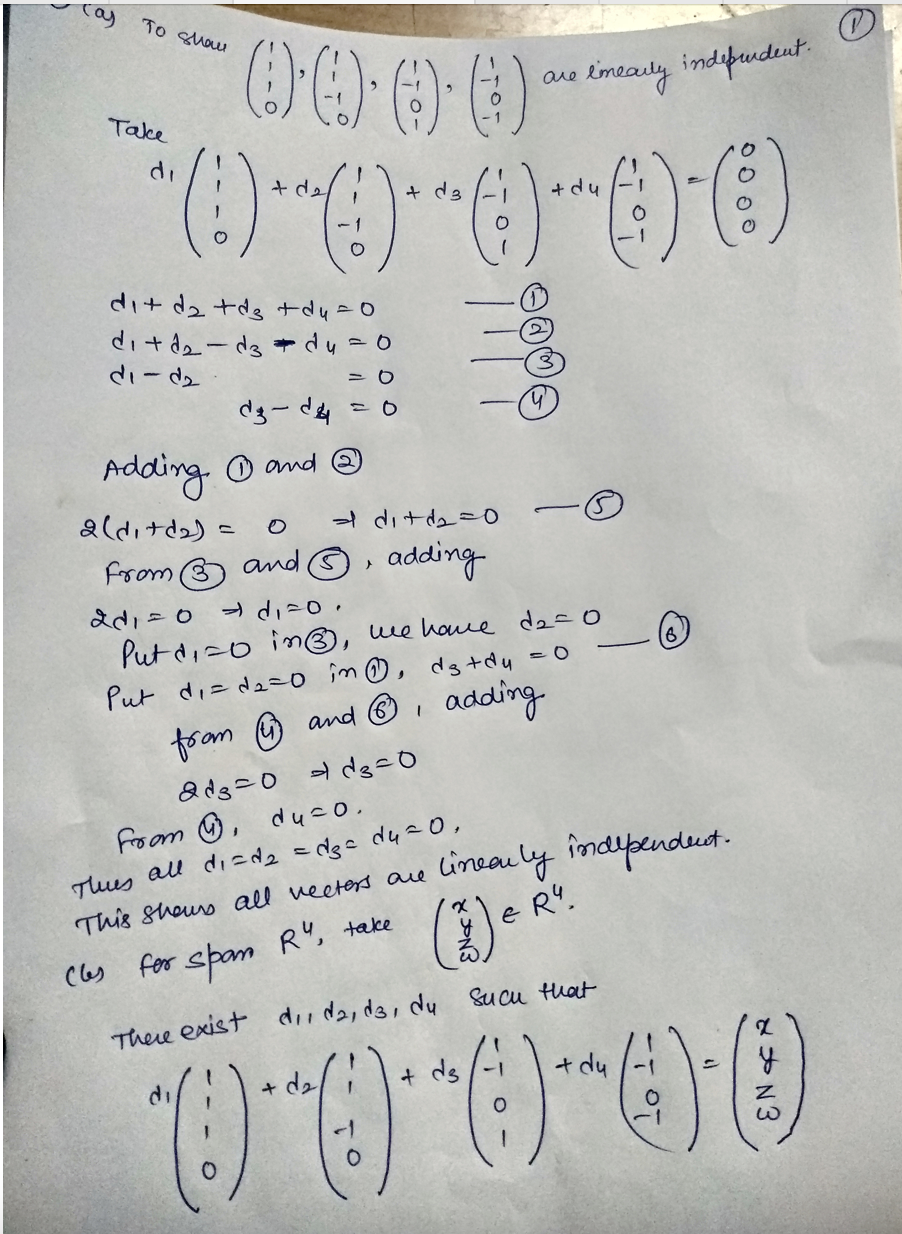 (a) To show (1 1 1 0), (1 1 -1 0), (1 -1 0 1), (1 -1 0 -1) are linearly independent. ①
Take
d1 (1 1 1 0) + d2 (1 1 -1 0) + d3 (1 -1 0 1) + d4 (1 -1 0 -1) = (0 0 0 0)
d1 + d2 + d3 + d4 = 0 — ①
d1 + d2 - d3 - d4 = 0 — ②
d1 - d2 = 0 — ③
d3 - d4 = 0 — ④
Adding ① and ②
2(d1+d2) = 0 ⇒ d1+d2=0 — ⑤
From ③ and ⑤, adding
2d1=0 ⇒ d1=0.
Put d1=0 in ③, we have d2=0
Put d1=d2=0 in ①, d3+d4=0 — ⑥
from ④ and ⑥, adding
2d3=0 ⇒ d3=0
From ④, d4=0.
Thus all d1=d2=d3=d4=0,
This shows all vectors are linearly independent.
(b) for span R⁴, take (x y z w) ∈ R⁴.
There exist d1, d2, d3, d4 such that
d1 (1 1 1 0) + d2 (1 1 -1 0) + d3 (1 -1 0 1) + d4 (1 -1 0 -1) = (x y z w)